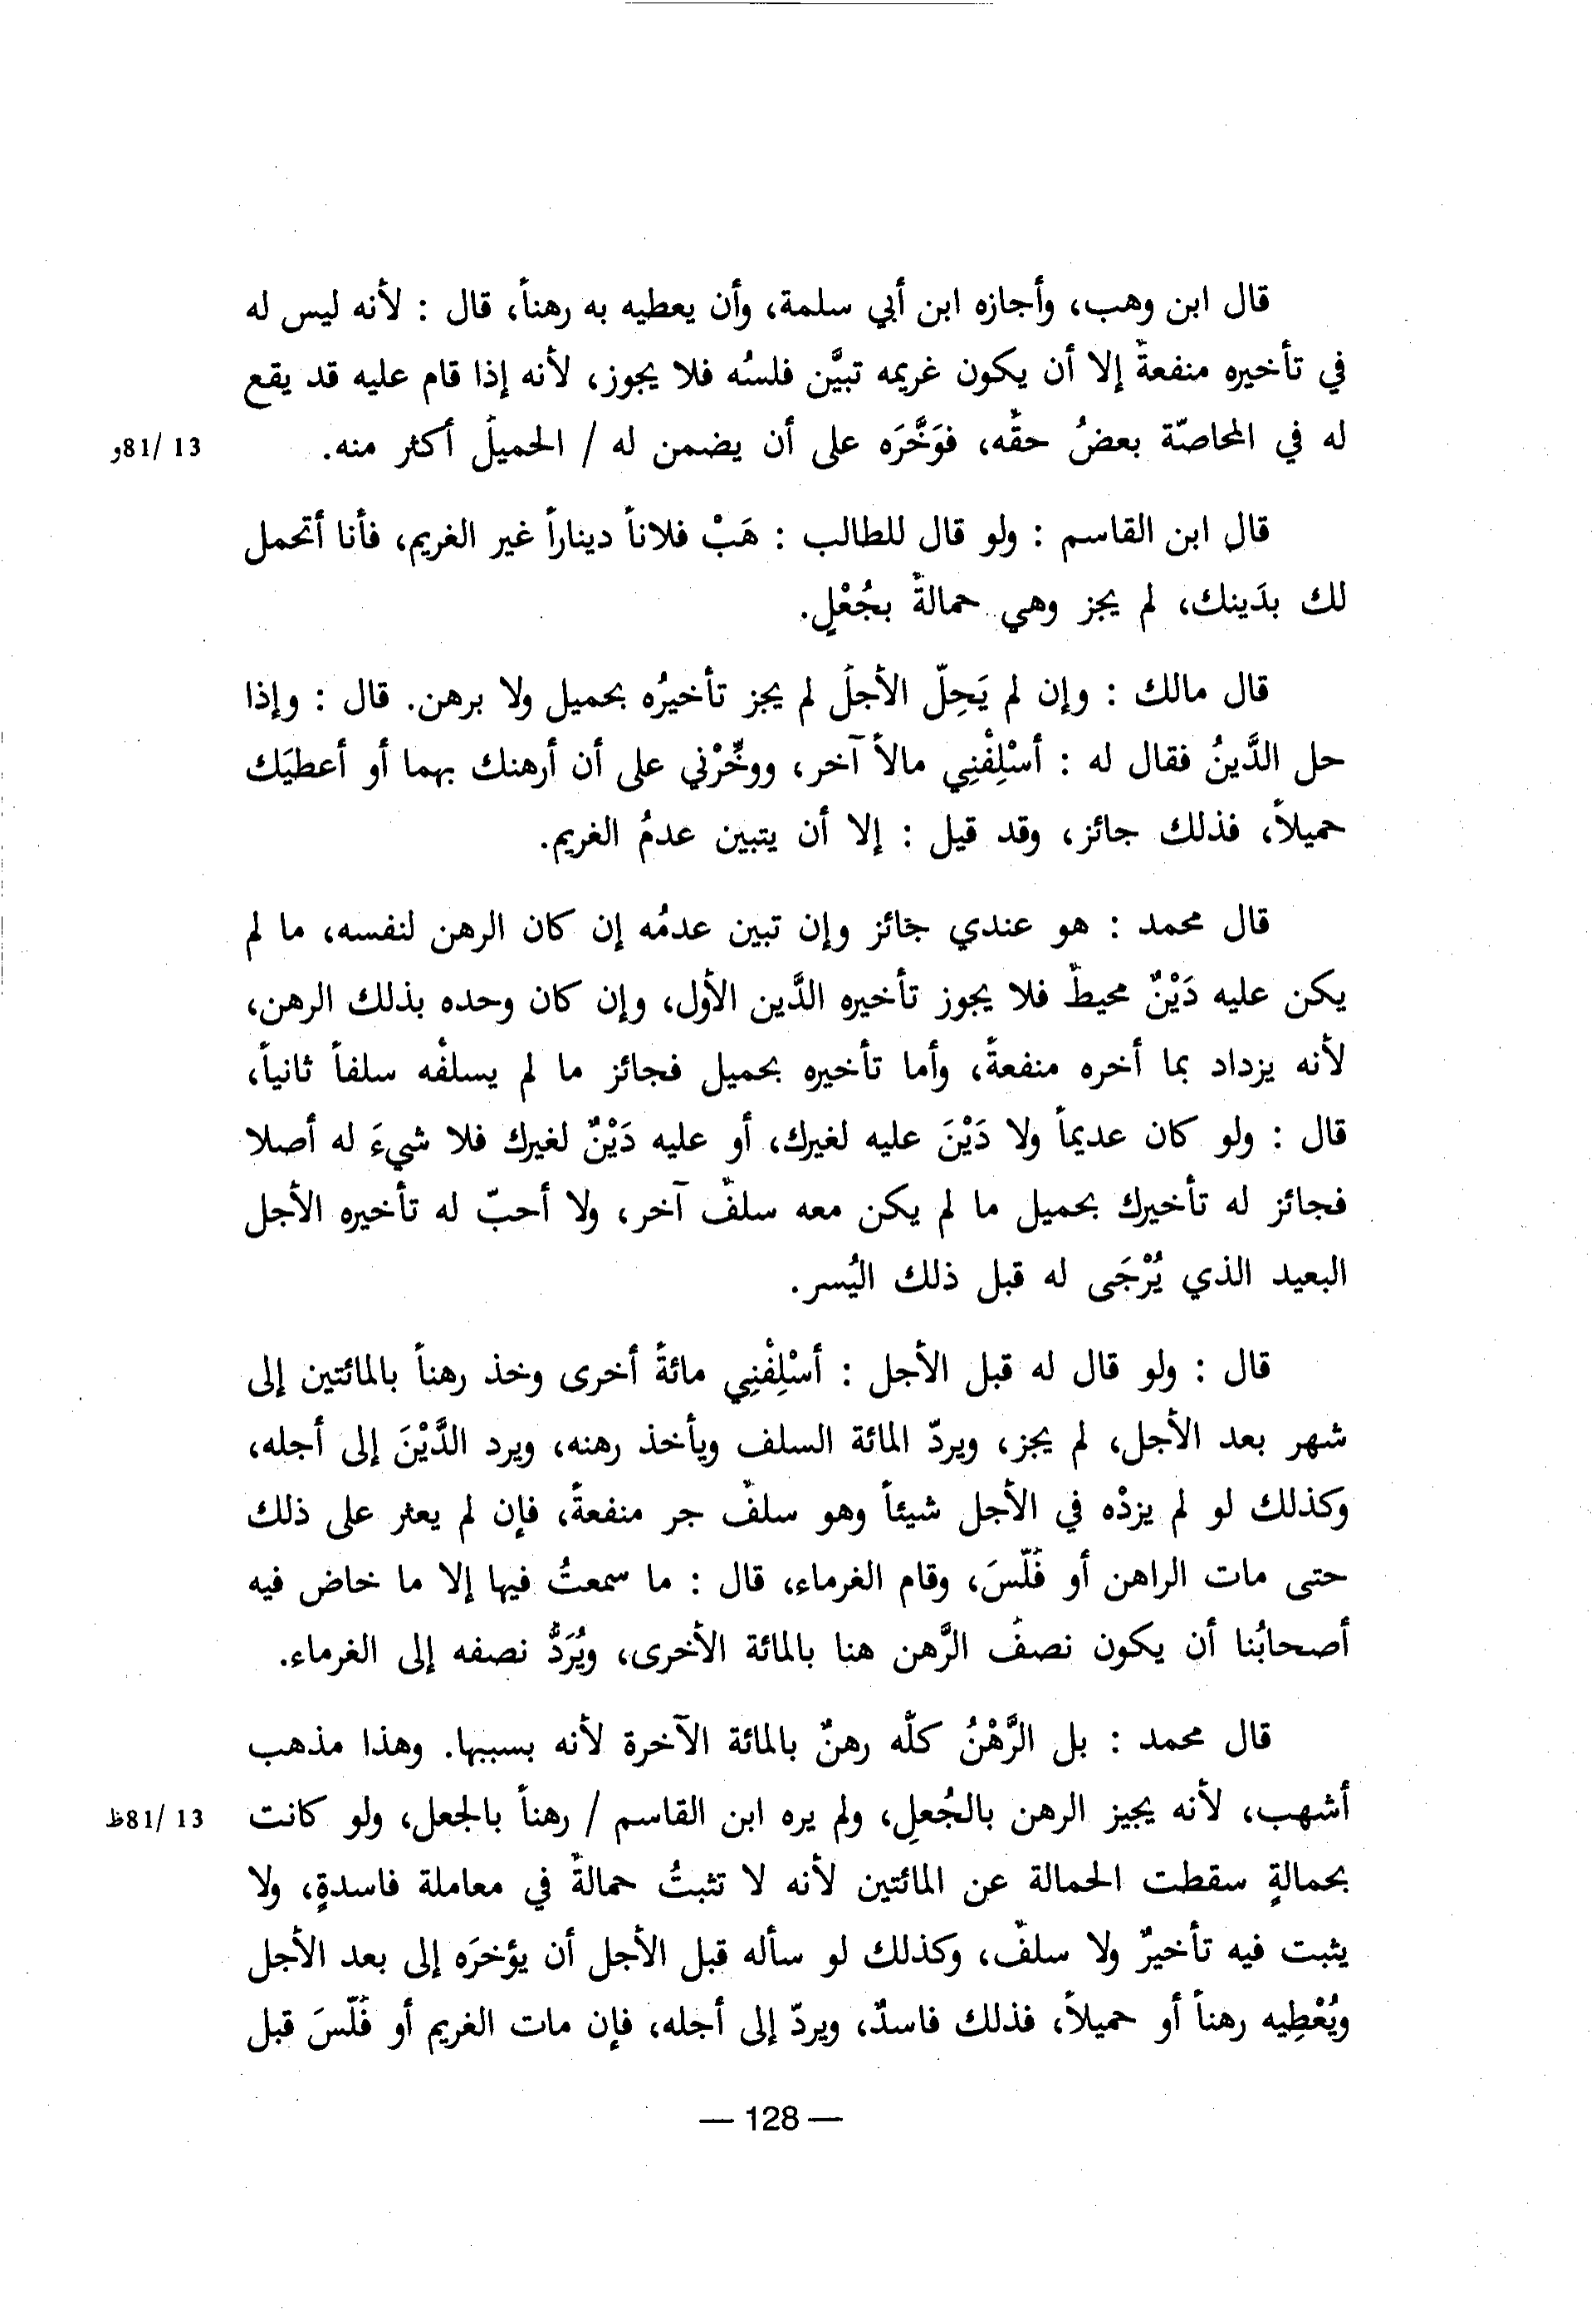 قال ابن وهب، وأجازه ابن أبي سلمة، وأن يعطيه به رهناً، قال : لأنه ليس له
في تأخيره منفعةٌ إلا أن يكون غريمه تبيَّن فلسُه فلا يجوز، لأنه إذا قام عليه قد يقع
له في المحاصّة بعضُ حقِّه، فوَخَّرَه على أن يضمن له / الحميلُ أكثر منه.
13 /81و
قال ابن القاسم : ولو قال للطالب : هَبْ فلاناً ديناراً غير الغريم، فأنا أتحمل
لك بدَينك، لم يجز وهي حمالةٌ بجُعْلٍ.
قال مالك : وإن لم يَحِلّ الأجلُ لم يجز تأخيرُه بحميل ولا برهن. قال : وإذا
حل الدَّينُ فقال له : أسْلِفْنِي مالاً آخر، ووخِّرْني على أن أرهنك بهما أو أعطيَك
حميلاً، فذلك جائز، وقد قيل : إلا أن يتبين عدمُ الغريم.
قال محمد : هو عندي جائز وإن تبين عدمُه إن كان الرهن لنفسه، ما لم
يكن عليه دَيْنٌ محيطٌ فلا يجوز تأخيره الدَّين الأول، وإن كان وحده بذلك الرهن،
لأنه يزداد بما أخره منفعةً، وأما تأخيره بحميل فجائز ما لم يسلفْه سلفاً ثانياً،
قال : ولو كان عديماً ولا دَيْنَ عليه لغيرك، أو عليه دَيْنٌ لغيرك فلا شيءَ له أصلا
فجائز له تأخيرك بحميل ما لم يكن معه سلفٌ آخر، ولا أحبّ له تأخيره الأجل
البعيد الذي يُرْجَى له قبل ذلك اليُسر.
قال : ولو قال له قبل الأجل : أسْلِفْنِي مائةً أخرى وخذ رهناً بالمائتين إلى
شهر بعد الأجل، لم يجز، ويردّ المائة السلف ويأخذ رهنه، ويرد الدَّيْنَ إلى أجله،
وكذلك لو لم يزدْه في الأجل شيئاً وهو سلفٌ جر منفعةً، فإن لم يعثر على ذلك
حتى مات الراهن أو فَلّسَ، وقام الغرماء، قال : ما سمعتُ فيها إلا ما خاض فيه
أصحابُنا أن يكون نصفُ الرَّهن هنا بالمائة الأخرى، ويُرَدُّ نصفه إلى الغرماء.
قال محمد : بل الرَّهْنُ كلُّه رهنٌ بالمائة الآخرة لأنه بسببها. وهذا مذهب
أشهب، لأنه يجيز الرهن بالجُعلِ، ولم يره ابن القاسم / رهناً بالجعل، ولو كانت
13 /81ظ
بحمالةٍ سقطت الحمالة عن المائتين لأنه لا تثبتُ حمالةٌ في معاملة فاسدةٍ، ولا
يثبت فيه تأخيرٌ ولا سلفٌ، وكذلك لو سأله قبل الأجل أن يؤخرَه إلى بعد الأجل
ويُعْطِيه رهناً أو حميلاً، فذلك فاسدٌ، ويردّ إلى أجله، فإن مات الغريم أو فَلّسَ قبل
— 128 —